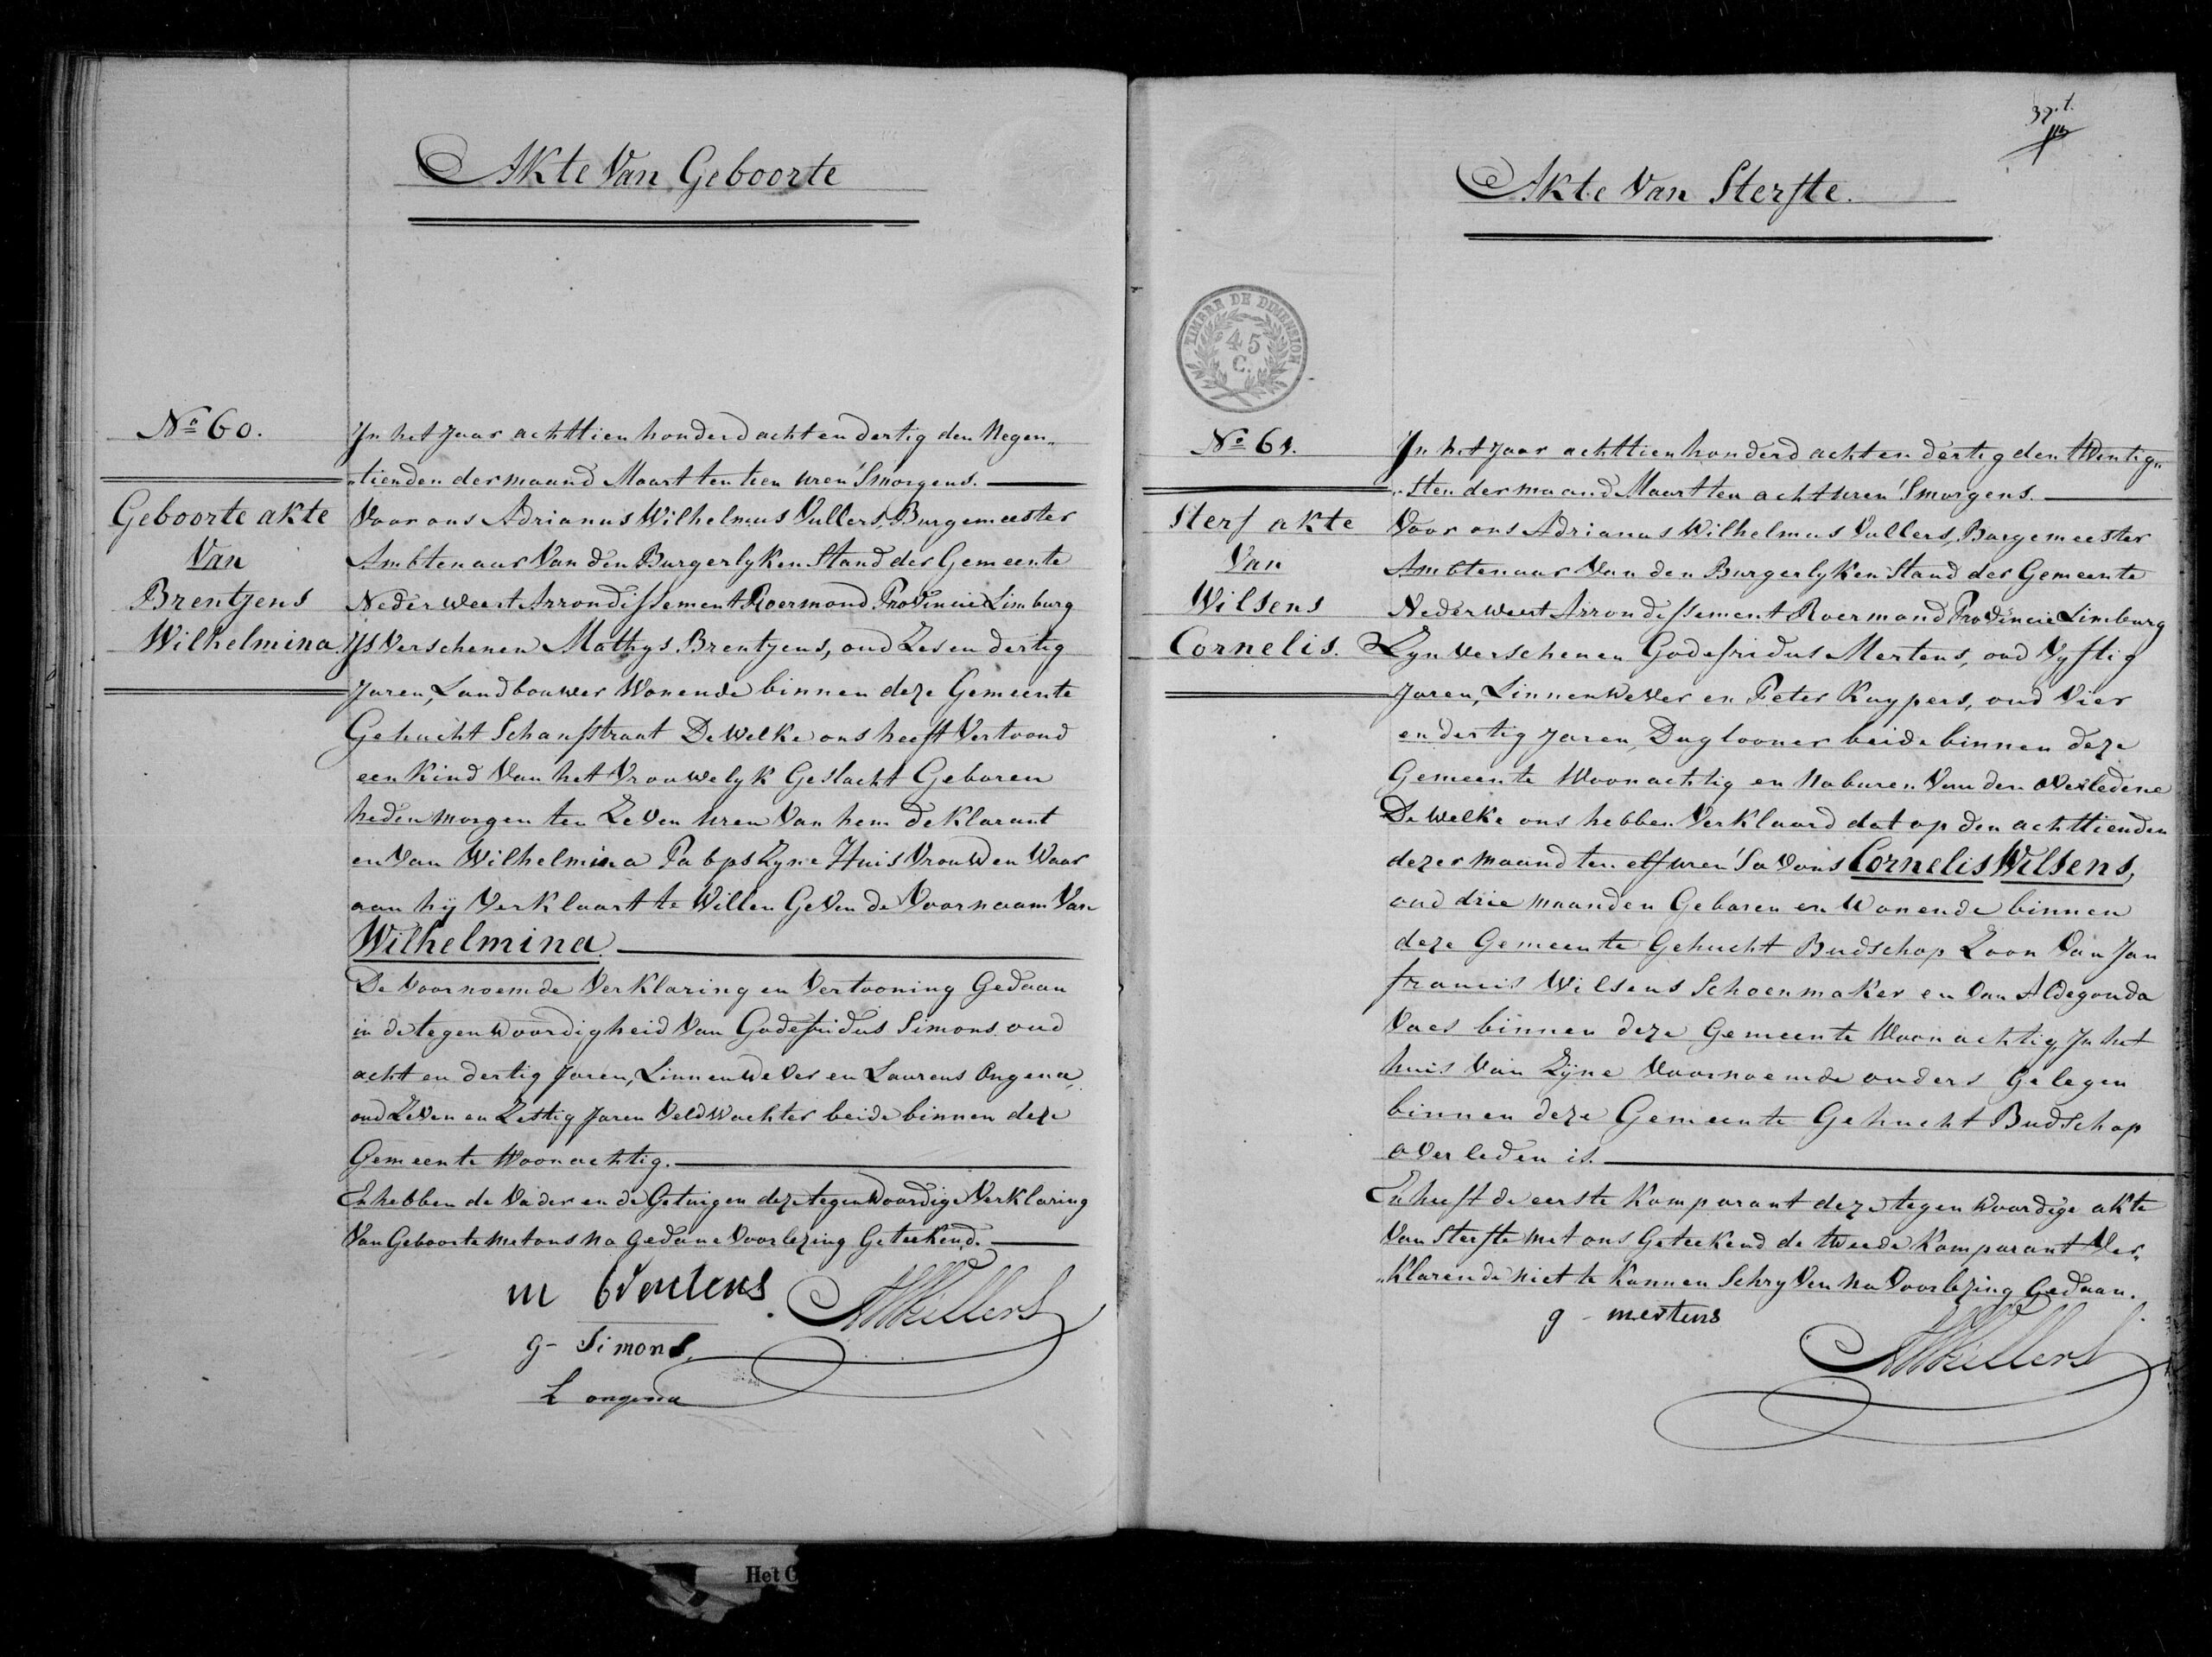 Akte Van Geboorte
No 60.
Geboorte akte
Van
Brentjens
Wilhelmina
In het Jaar achttien honderd acht en dertig den Negen„
„tienden der maand Maart ten tien uren 'Smorgens.
Voor ons Adrianus Wilhelmus Vullers, Burgemeester
Ambtenaar Van den Burgerlyken Stand der Gemeente
Nederweert Arrondissement Roermond Provincie Limburg
Is Verschenen Mathys Brentjens, oud Zes en dertig
Jaren, Landbouwer Wonende binnen deze Gemeente
Gehucht Schansstraat De Welke ons heeft Vertoond
een Kind Van het Vrouwelyk Geslacht Geboren
heden morgen ten Zeven uren Van hem deklarant
en Van Wilhelmina Zyne Huis Vrouw en Waar
aan hij Verklaart te Willen Geven de Voornaam Van
Wilhelmina.
De Voornoemde Verklaring en Vertooning Gedaan
in de tegenwoordigheid Van Godefridus Simons oud
acht en dertig Jaren, Linnenwever en Laurens Ongena,
oud Zeven en Zestig Jaren Veldwachter beide binnen deze
Gemeente Woonachtig.
En hebben de Vader en de Getuigen deze tegenwoordige Verklaring
Van Geboorte met ons na gedane Voorlezing Geteekend.
m
AWVullers
g - Simons
L ongena
Het C
32.t.
Akte Van Sterfte.
TIMBRE DE DIMENSION
45
C.
No 61.
Sterf akte
Van
Wilsens
Cornelis.
In het Jaar achttien honderd acht en dertig den tWentig„
„sten der maand Maart ten acht uren 'Smorgens.
Voor ons Adrianus Wilhelmus Vullers, Burgemeester
Ambtenaar Van den Burgerlyken Stand der Gemeente
Nederweert Arrondissement Roermond Provincie Limburg
Zyn Verschenen Godefridus Mertens, oud Vyftig
Jaren, Linnenwever en Peter Kuypers, oud Vier
en dertig Jaren, Daglooner beide binnen deze
Gemeente Woonachtig en Naburen Van den Overledene
De Welke ons hebben Verklaard dat op den achttienden
dezer maand ten elf uren 'Savons Cornelis Wilsens,
oud drie maanden Geboren en Wonende binnen
deze Gemeente Gehucht Budschop Zoon Van Jan
francis Wilsens Schoenmaker en Van Aldegonda
Vaes binnen deze Gemeente Woonachtig, In het
huis Van Zijne Voornoemde ouders Gelegen
binnen deze Gemeente Gehucht Budschop
overleden is.
En heeft de eerste Komparant deze tegenwoordige akte
Van Sterfte met ons Geteekend de tweede Komparant Ver„
„klarende niet te Kunnen Schryven na Voorlezing Gedaan.
g - mertens
AWVullers